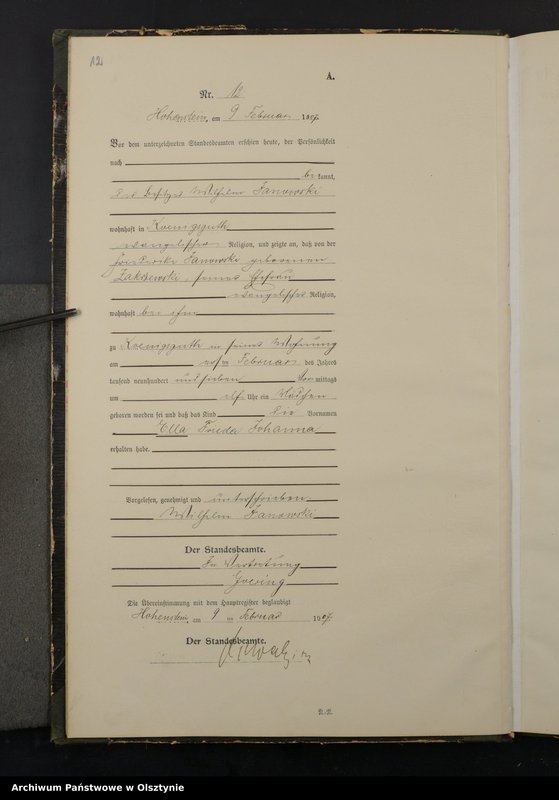 12
A.
Nr. 12
Hohenstein, am 9 Februar 1907.
Vor dem unterzeichneten Standesbeamten erschien heute, der Persönlichkeit
nach
be kannt,
der Besitzer Wilhelm Janowski
wohnhaft in Koenigsguth
evangelischer Religion, und zeigte an, daß von der
Janowski geborenen
Zakrzewski, seiner Ehefrau
evangelischer Religion,
wohnhaft bei ihm
zu Koenigsguth in seiner Wohnung
am Februar des Jahres
tausend neunhundert und sieben Vor mittags
um elf Uhr ein Mädchen
geboren worden sei und daß das Kind die Vornamen
Ella Frieda Johanna
erhalten habe.
Vorgelesen, genehmigt und unterschrieben
Wilhelm Janowski
Der Standesbeamte.
In Vertretung
Goering
Die Übereinstimmung mit dem Hauptregister beglaubigt
Hohenstein, am 9 ten Februar 1907.
Der Standesbeamte.
Archiwum Państwowe w Olsztynie